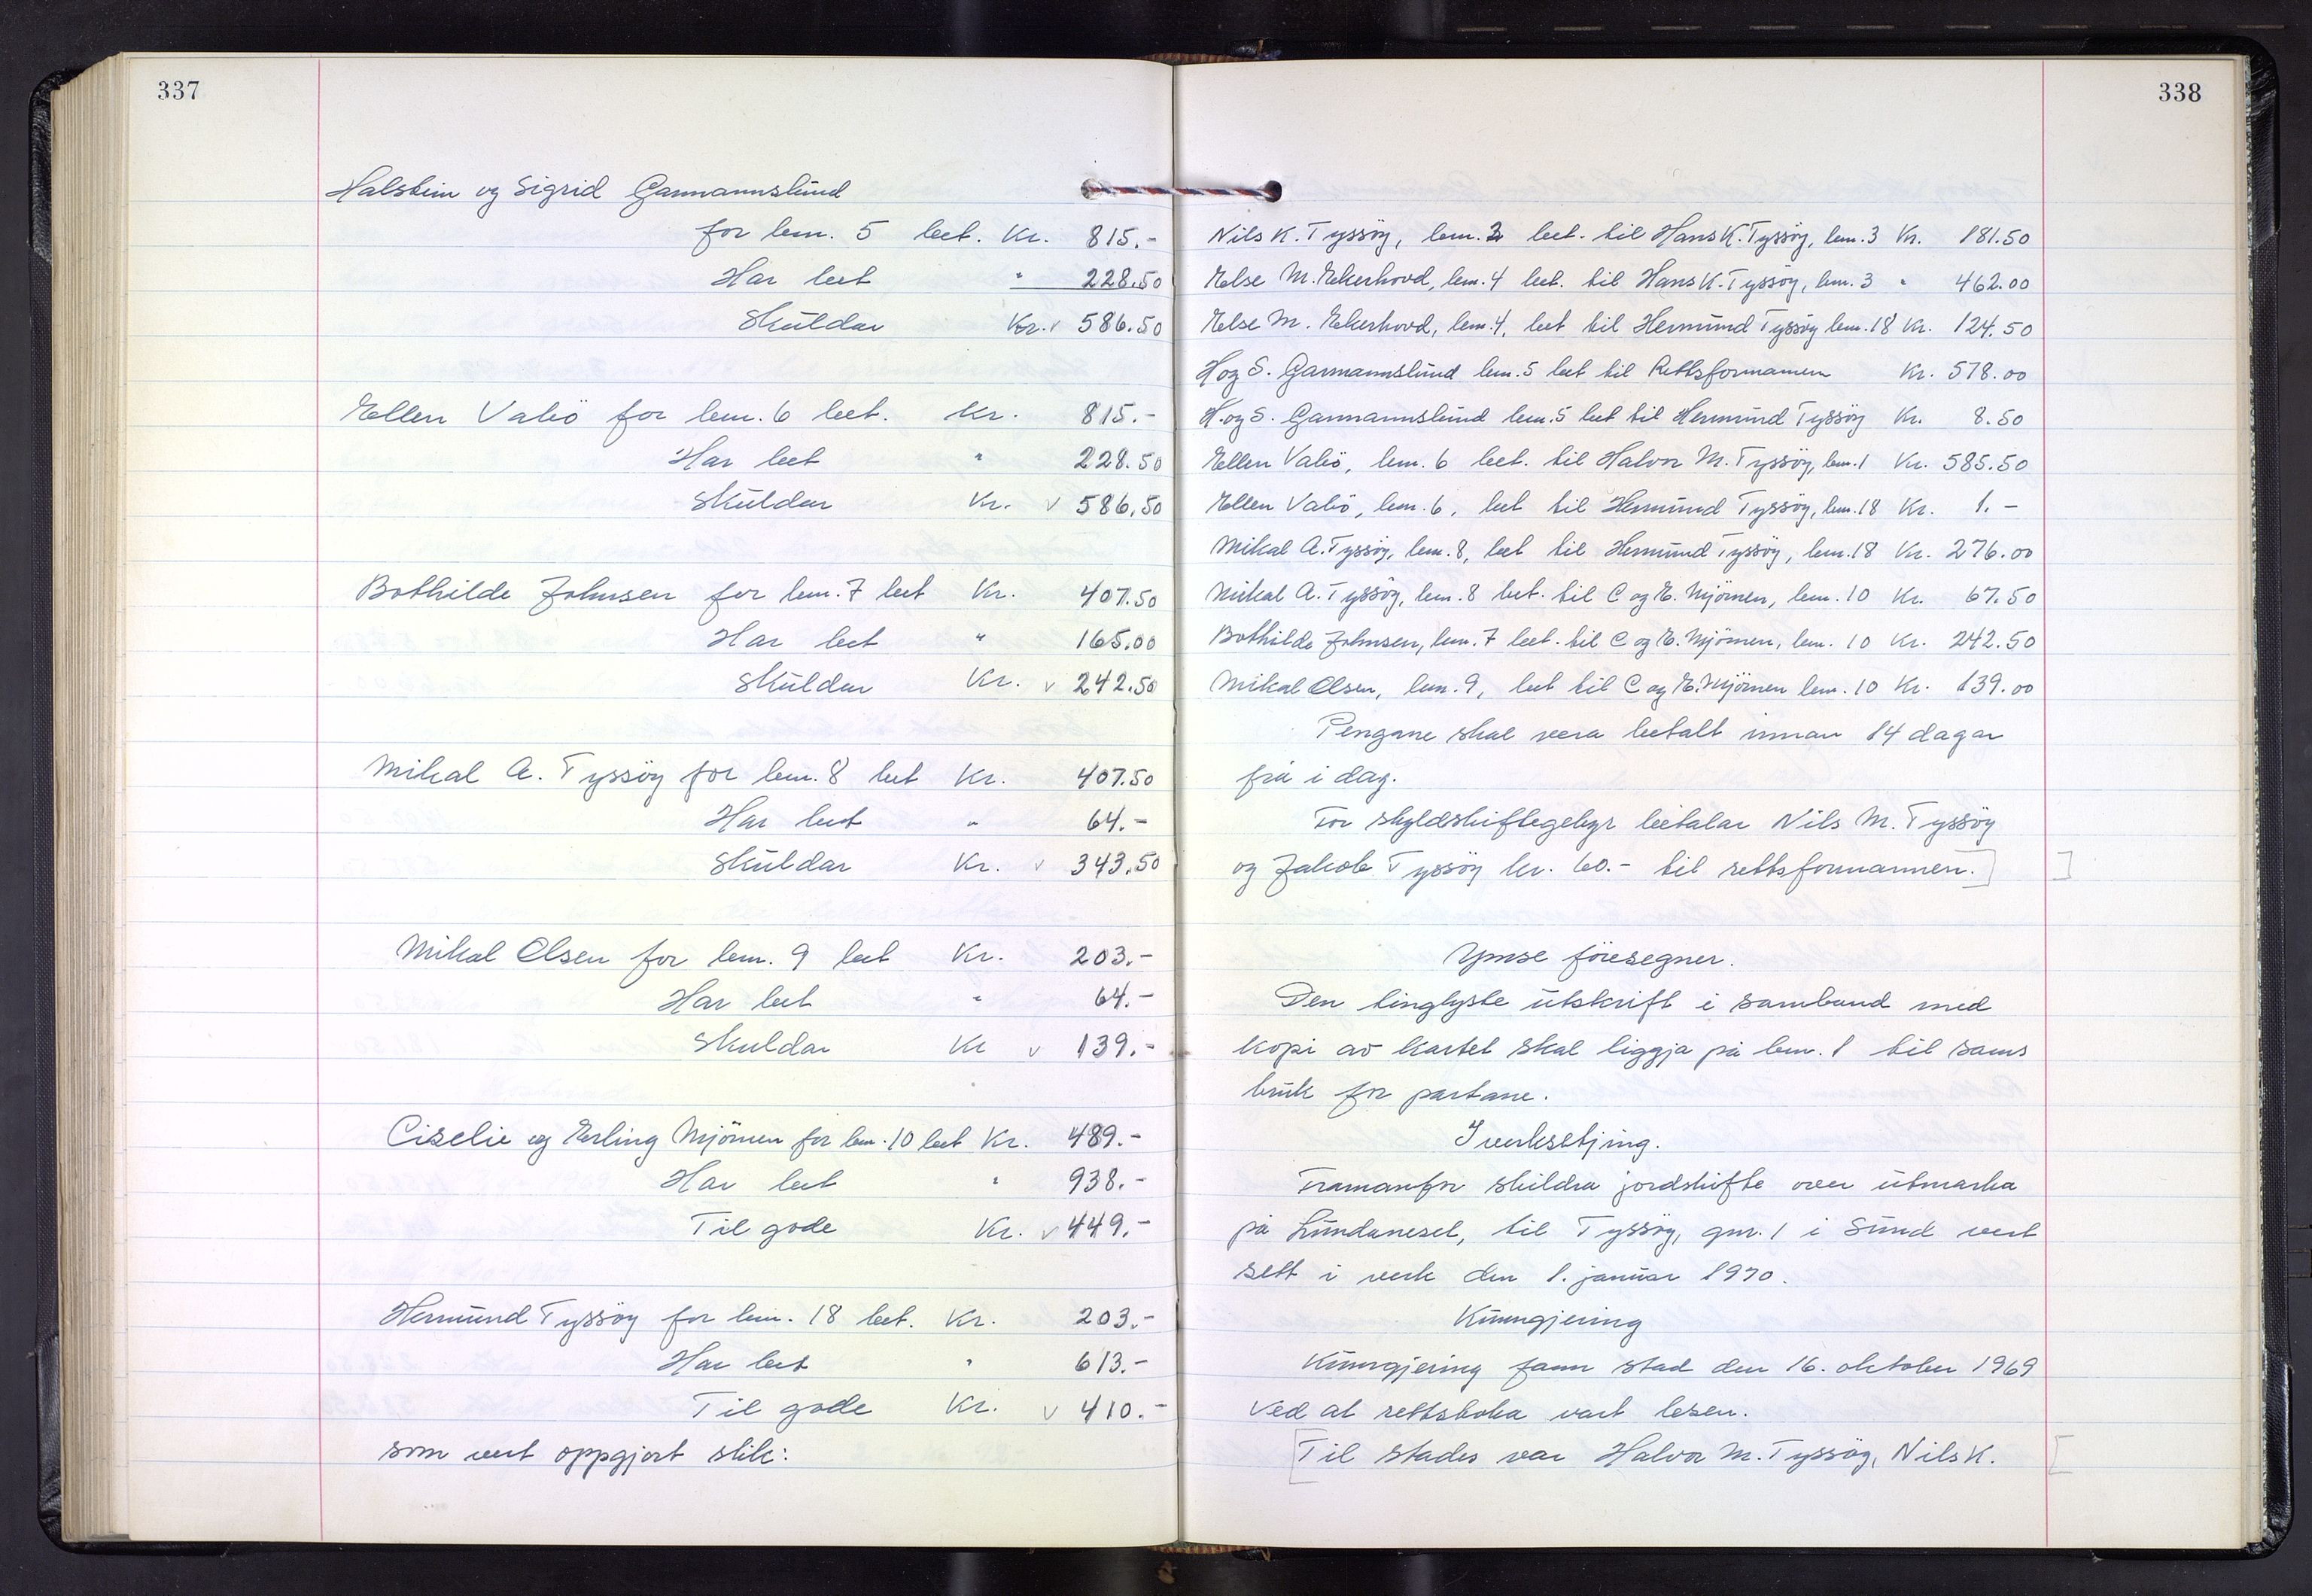 337
Halstein og Sigrid Garmannslund
for lem. 5 bet. Kr. 815.-
Har bet " 228.50
Skuldar Kr. v 586.50
Ellen Valiö for lem. 6 bet. Kr. 815.-
Har bet " 228.50
Skuldar Kr. v 586.50
Bothilde Johnsen for lem. 7 bet Kr. 407.50
Har bet " 165.00
Skuldar Kr. v 242.50
Mikal A. Tyssöy for lem. 8 bet Kr. 407.50
Har bet " 64.-
Skuldar Kr. v 343.50
Mikal Olsen for lem. 9 bet Kr. 203.-
Har bet " 64.-
Skuldar Kr v 139.-
Ciselie og Erling Mjömen for lem. 10 bet Kr. 489.-
Har bet " 938.-
Til gode Kr. v 449.-
Hermund Tyssöy for lem. 18 bet. Kr. 203.-
Har bet " 613.-
Til gode Kr. v 410.-
som vert oppgjort slik:
338
Nils K. Tyssöy, lem. 2 bet. til Hans K. Tyssöy, lem. 3 Kr. 181.50
Else M. Ekerhovd, lem. 4 bet. til Hans K. Tyssöy, lem. 3 " 462.00
Else M. Ekerhovd, lem. 4, bet til Hermund Tyssöy lem. 18 Kr. 124.50
H og S. Garmannslund lem. 5 bet til Rettsformannen Kr. 578.00
H. og S. Garmannslund lem. 5 bet til Hermund Tyssöy Kr. 8.50
Ellen Valiö, lem. 6 bet. til Halvor M. Tyssöy, lem. 1 Kr. 585.50
Ellen Valiö, lem. 6, bet til Hermund Tyssöy, lem. 18 Kr. 1.-
Mikal A. Tyssöy, lem. 8, bet til Hermund Tyssöy, lem. 18 Kr. 276.00
Mikal A. Tyssöy, lem. 8 bet. til C og E. Mjömen, lem. 10 Kr. 67.50
Bothilde Johnsen, lem. 7 bet. til C og E. Mjömen, lem. 10 Kr. 242.50
Mikal Olsen, lem. 9, bet til C og E. Mjömen lem. 10 Kr. 139.00
Pengane skal vera betalt innan 14 dagar
frå i dag.
For skyldskiftegebyr betalar Nils M. Tyssöy
og Jakob Tyssöy kr. 60.- til rettsformannen.] ]
Ymse föresegner.
Den tinglyste utskrift i samband med
kopi av kartet skal liggja på lem. 1 til sams
bruk for partane.
Iverksetjing.
Framanfor skildra jordskifte over utmarka
på Lundaneset, til Tyssöy, gnr. 1 i Sund vert
sett i verk den 1. januar 1970.
Kunngjering
Kunngjering fann stad den 16. oktober 1969
ved at rettsboka vart lesen.
[Til stades var Halvor M. Tyssöy, Nils K. [